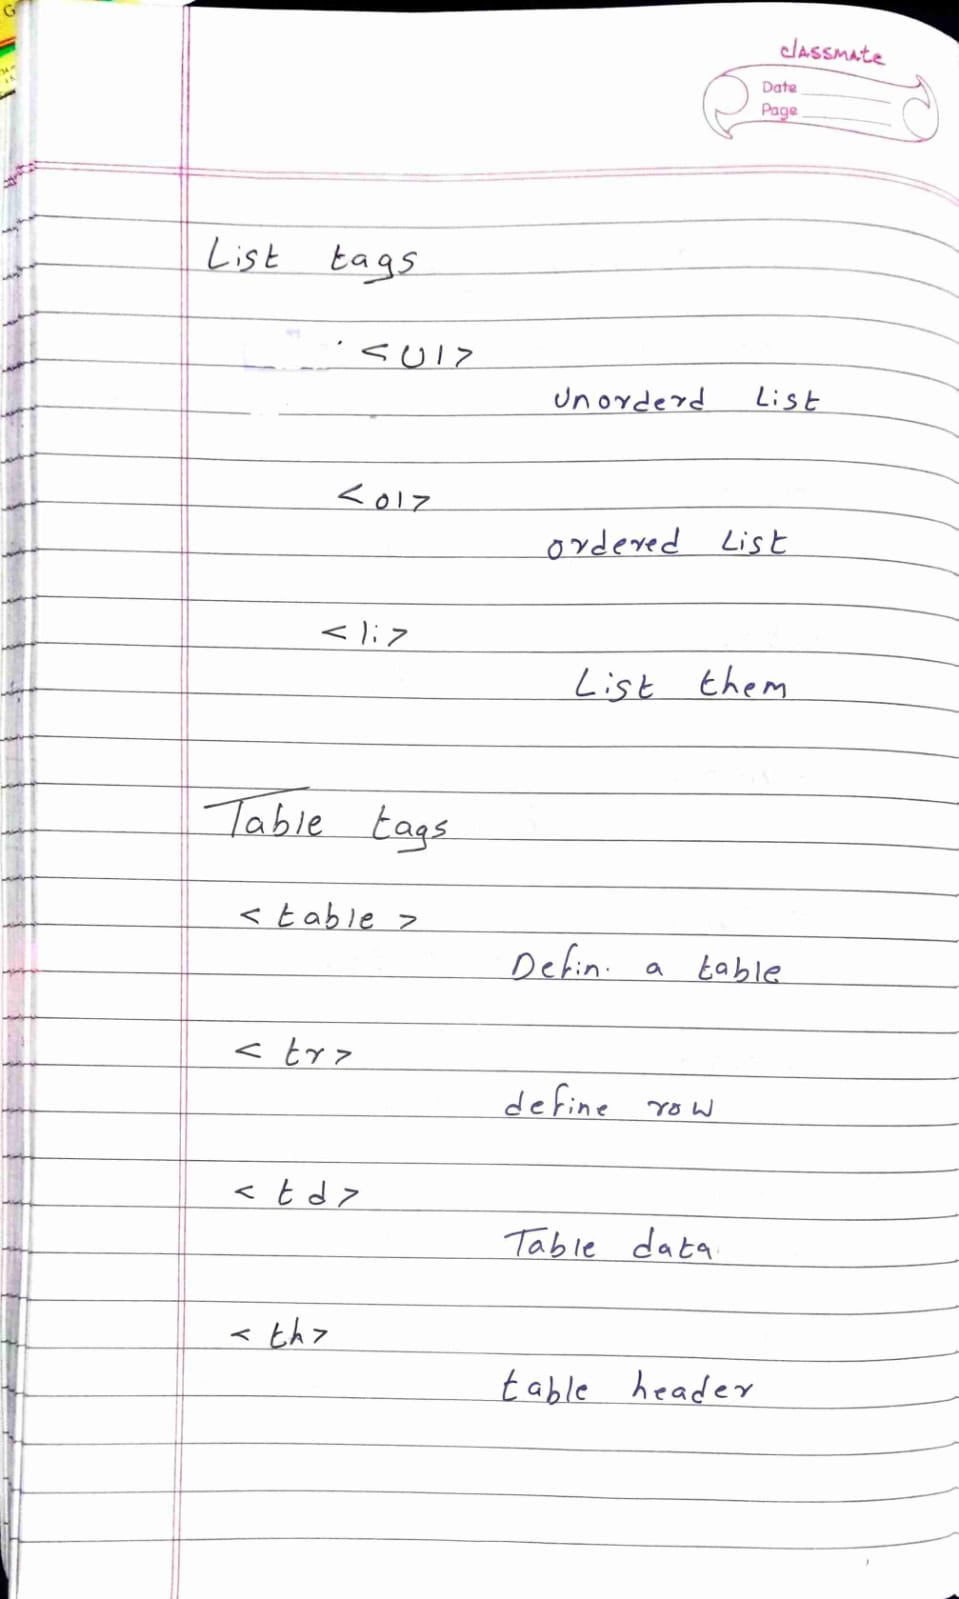 classmate
Date
Page
List tags
<ul>
unorderd List
<ol>
ordered List
<li>
List them
Table tags
<table>
Defin. a table
<tr>
define row
<td>
Table data
<th>
table header